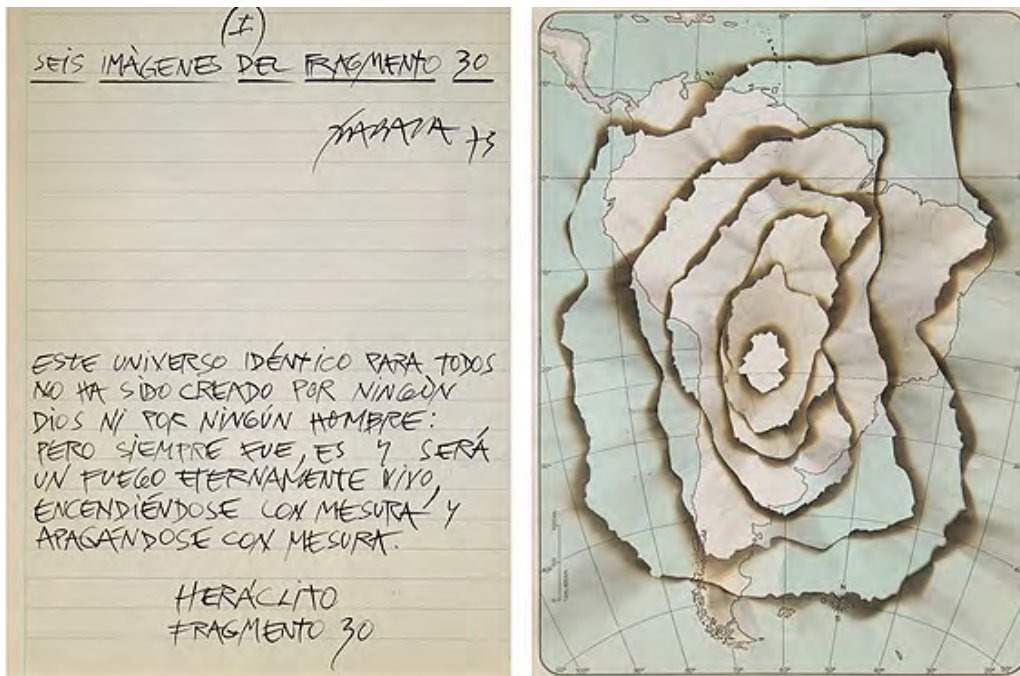 (I)
SEIS IMÀGENES DEL FRAGMENTO 30
ZABALA 73
ESTE UNIVERSO IDÉNTICO PARA TODOS
NO HA SIDO CREADO POR NINGÙN
DIOS NI POR NINGÚN HOMBRE:
PERO SIEMPRE FUE, ES Y SERÁ
UN FUEGO ETERNAMENTE VIVO,
ENCENDIÉNDOSE CON MESURA Y
APAGÁNDOSE CON MESURA.
HERÁCLITO
FRAGMENTO 30